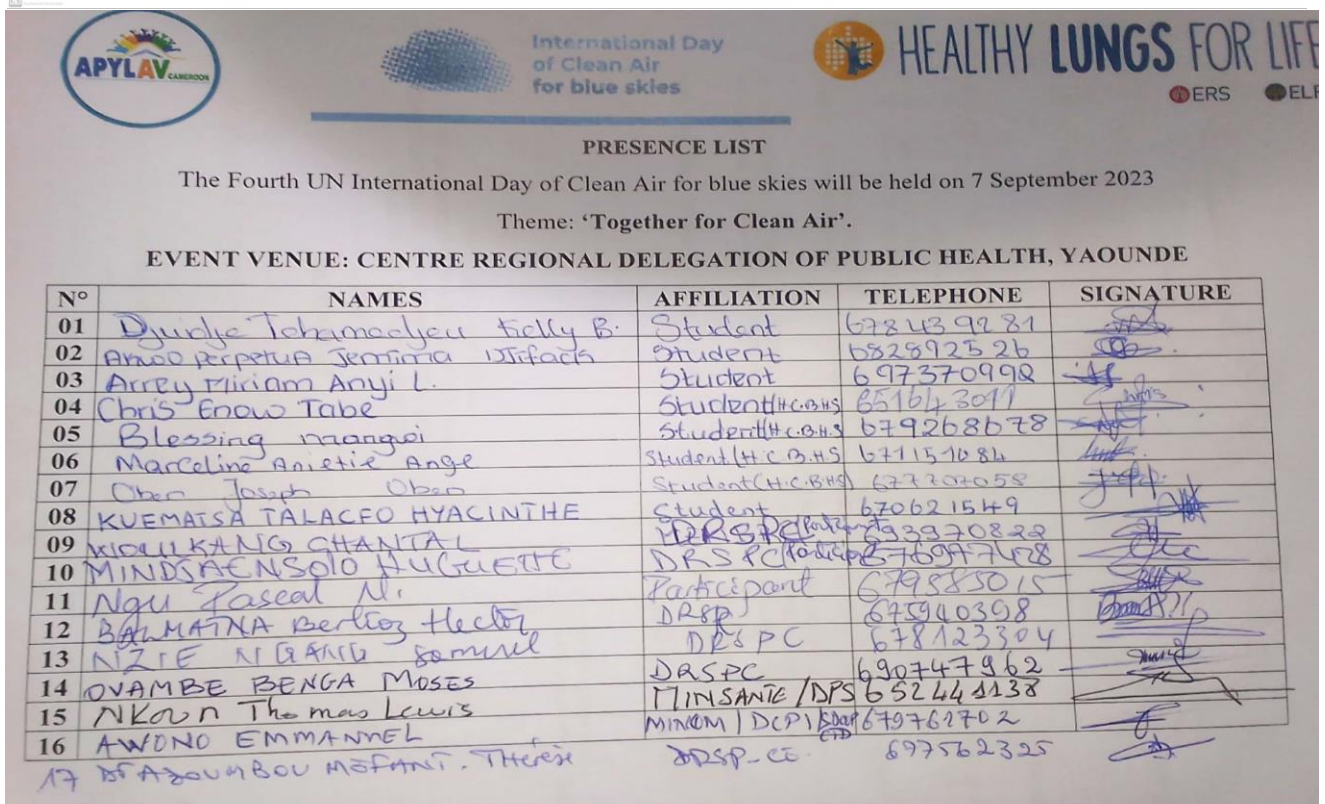 APYLAV CAMEROON
International Day
of Clean Air
for blue skies
HEALTHY LUNGS FOR LIFE
ERS ELF
PRESENCE LIST
The Fourth UN International Day of Clean Air for blue skies will be held on 7 September 2023
Theme: ‘Together for Clean Air’.
EVENT VENUE: CENTRE REGIONAL DELEGATION OF PUBLIC HEALTH, YAOUNDE
N° NAMES AFFILIATION TELEPHONE SIGNATURE
01 Kelly B. Student 678439281
02 Perpetua Jemima Student 682892526
03 Arrey Miriam Anyi L. Student 697370992
04 Chris Enow Tabe Student (H.C.B.H.S) 651643011
05 Blessing Student (H.C.B.H.S) 679268678
06 Marceline Anietie Ange Student (H.C.B.H.S) 671151084
07 Oben Joseph Oben Student (H.C.B.H.S) 677707058
08 KUEMATSA TALACFO HYACINTHE Student 670621549
09 CHANTAL DRSPC 693970822
10 HUGUETTE DRSPC
11 Ngu Pascal N. Participant 679585015
12 Hector DRSP 675940398
13 NGANG Samuel DRSPC 678123304
14 OVAMBE BENGA MOSES DRSPC 690747962
15 Thomas Lewis MINSANTE/DPS 652441138
16 AWONO EMMANUEL MINCOM/DCPI 679761702
17 Thérèse DRSP-CE 697562325